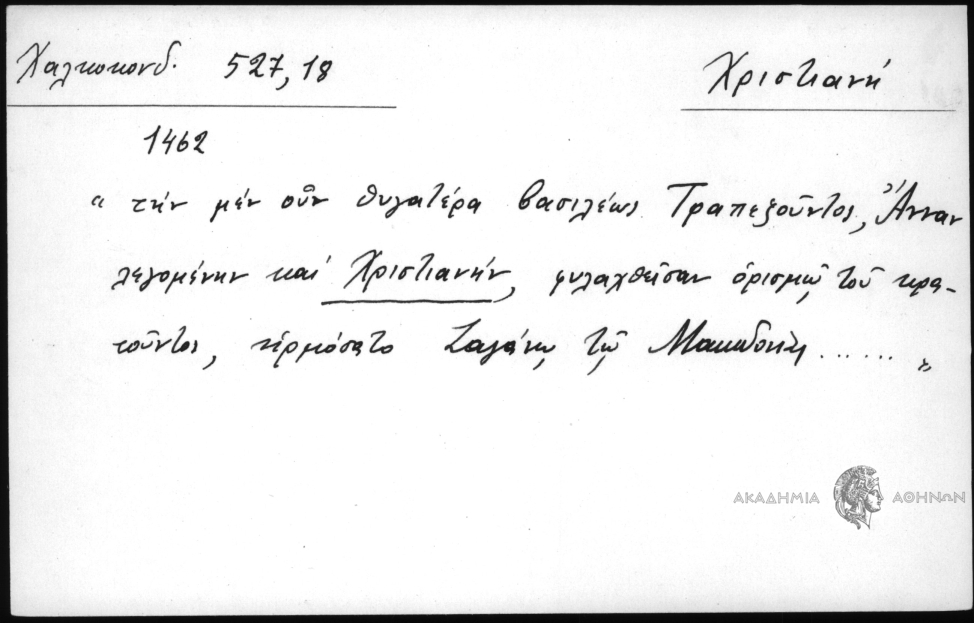 Χαλκοκονδ. 527,18
Χριστιανή
1462
“ τὴν μὲν οὖν θυγατέρα βασιλέως Τραπεζοῦντος, Ἄνναν
λεγομένην καὶ Χριστιανὴν, φυλαχθεῖσαν ὁρισμῷ τοῦ κρα-
τοῦντος, ἡρμόσατο Ζαγάνῳ τῷ ...... „
ΑΚΑΔΗΜΙΑ ΑΘΗΝΩΝ